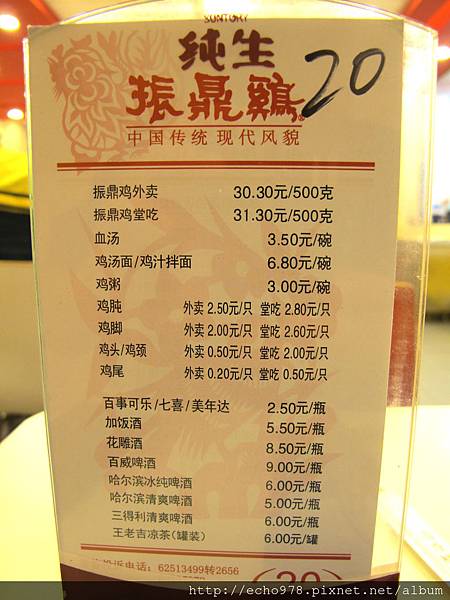 SUNTORY
纯生
振鼎鸡 20
中国传统 现代风貌
振鼎鸡外卖 30.30元/500克
振鼎鸡堂吃 31.30元/500克
血汤 3.50元/碗
鸡汤面/鸡汁拌面 6.80元/碗
鸡粥 3.00元/碗
鸡肫 外卖 2.50元/只 堂吃 2.80元/只
鸡脚 外卖 2.00元/只 堂吃 2.60元/只
鸡头/鸡颈 外卖 0.50元/只 堂吃 2.00元/只
鸡尾 外卖 0.20元/只 堂吃 0.50元/只
百事可乐/七喜/美年达 2.50元/瓶
加饭酒 5.50元/瓶
花雕酒 8.50元/瓶
百威啤酒 9.00元/瓶
哈尔滨冰纯啤酒 6.00元/瓶
哈尔滨清爽啤酒 5.00元/瓶
三得利清爽啤酒 6.00元/瓶
王老吉凉茶(罐装) 6.00元/罐
投诉电话：62513499转2656
20
http://echo978.pixnet.net/album